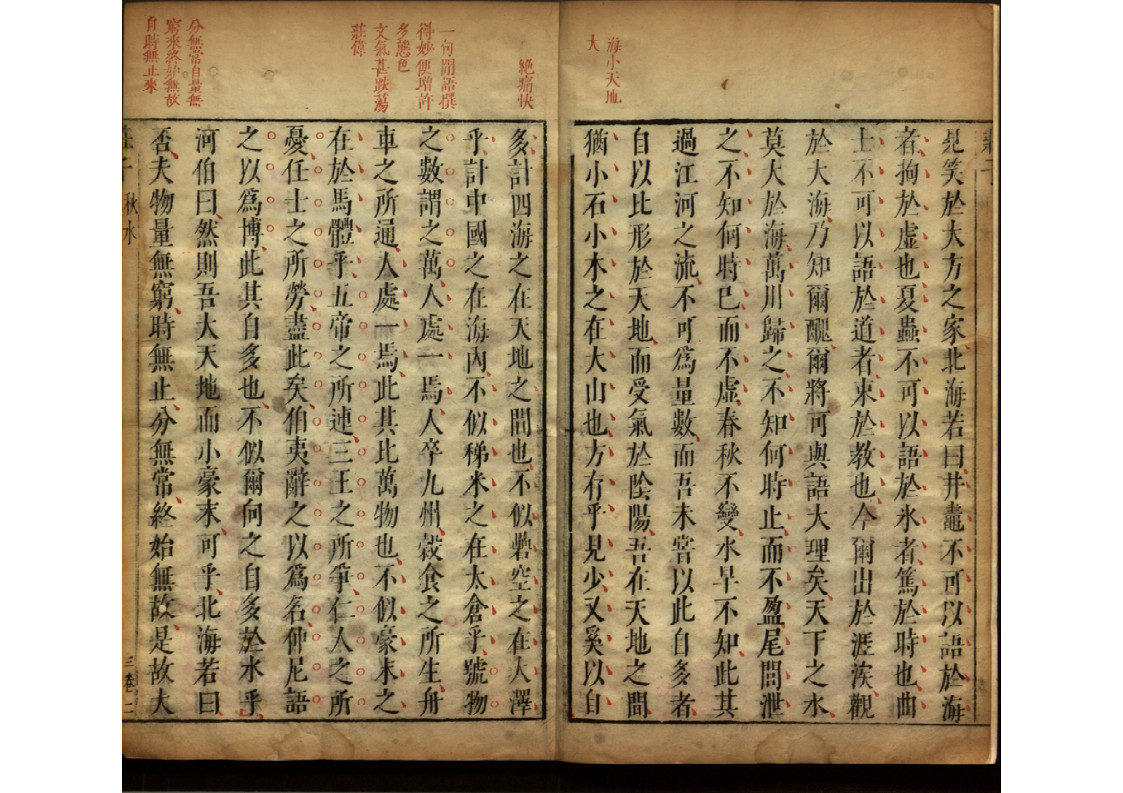 海小天地
大
見笑於大方之家北海若曰井鼃不可以語於海
者拘於虛也夏蟲不可以語於氷者篤於時也曲
士不可以語於道者束於教也今爾出於涯涘觀
於大海乃知爾醜爾將可與語大理矣天下之水
莫大於海萬川歸之不知何時止而不盈尾閭泄
之不知何時已而不虛春秋不變水旱不知此其
過江河之流不可爲量數而吾未嘗以此自多者
自以比形於天地而受氣於陰陽吾在天地之間
猶小石小木之在大山也方存乎見少又奚以自
絕痛快
一句閒語撰
得妙便增許
多態色
文氣甚跌蕩
莊偉
分無常自量無
窮來終始無故
自時無止來
多計四海之在天地之間也不似礨空之在大澤
乎計中國之在海內不似稊米之在太倉乎號物
之數謂之萬人處一焉人卒九州穀食之所生舟
車之所通人處一焉此其比萬物也不似豪末之
在於馬體乎五帝之所連三王之所爭仁人之所
憂任士之所勞盡此矣伯夷辭之以爲名仲尼語
之以爲博此其自多也不似爾向之自多於水乎
河伯曰然則吾大天地而小豪末可乎北海若曰
否夫物量無窮時無止分無常終始無故是故大
莊子 秋水
三卷 二